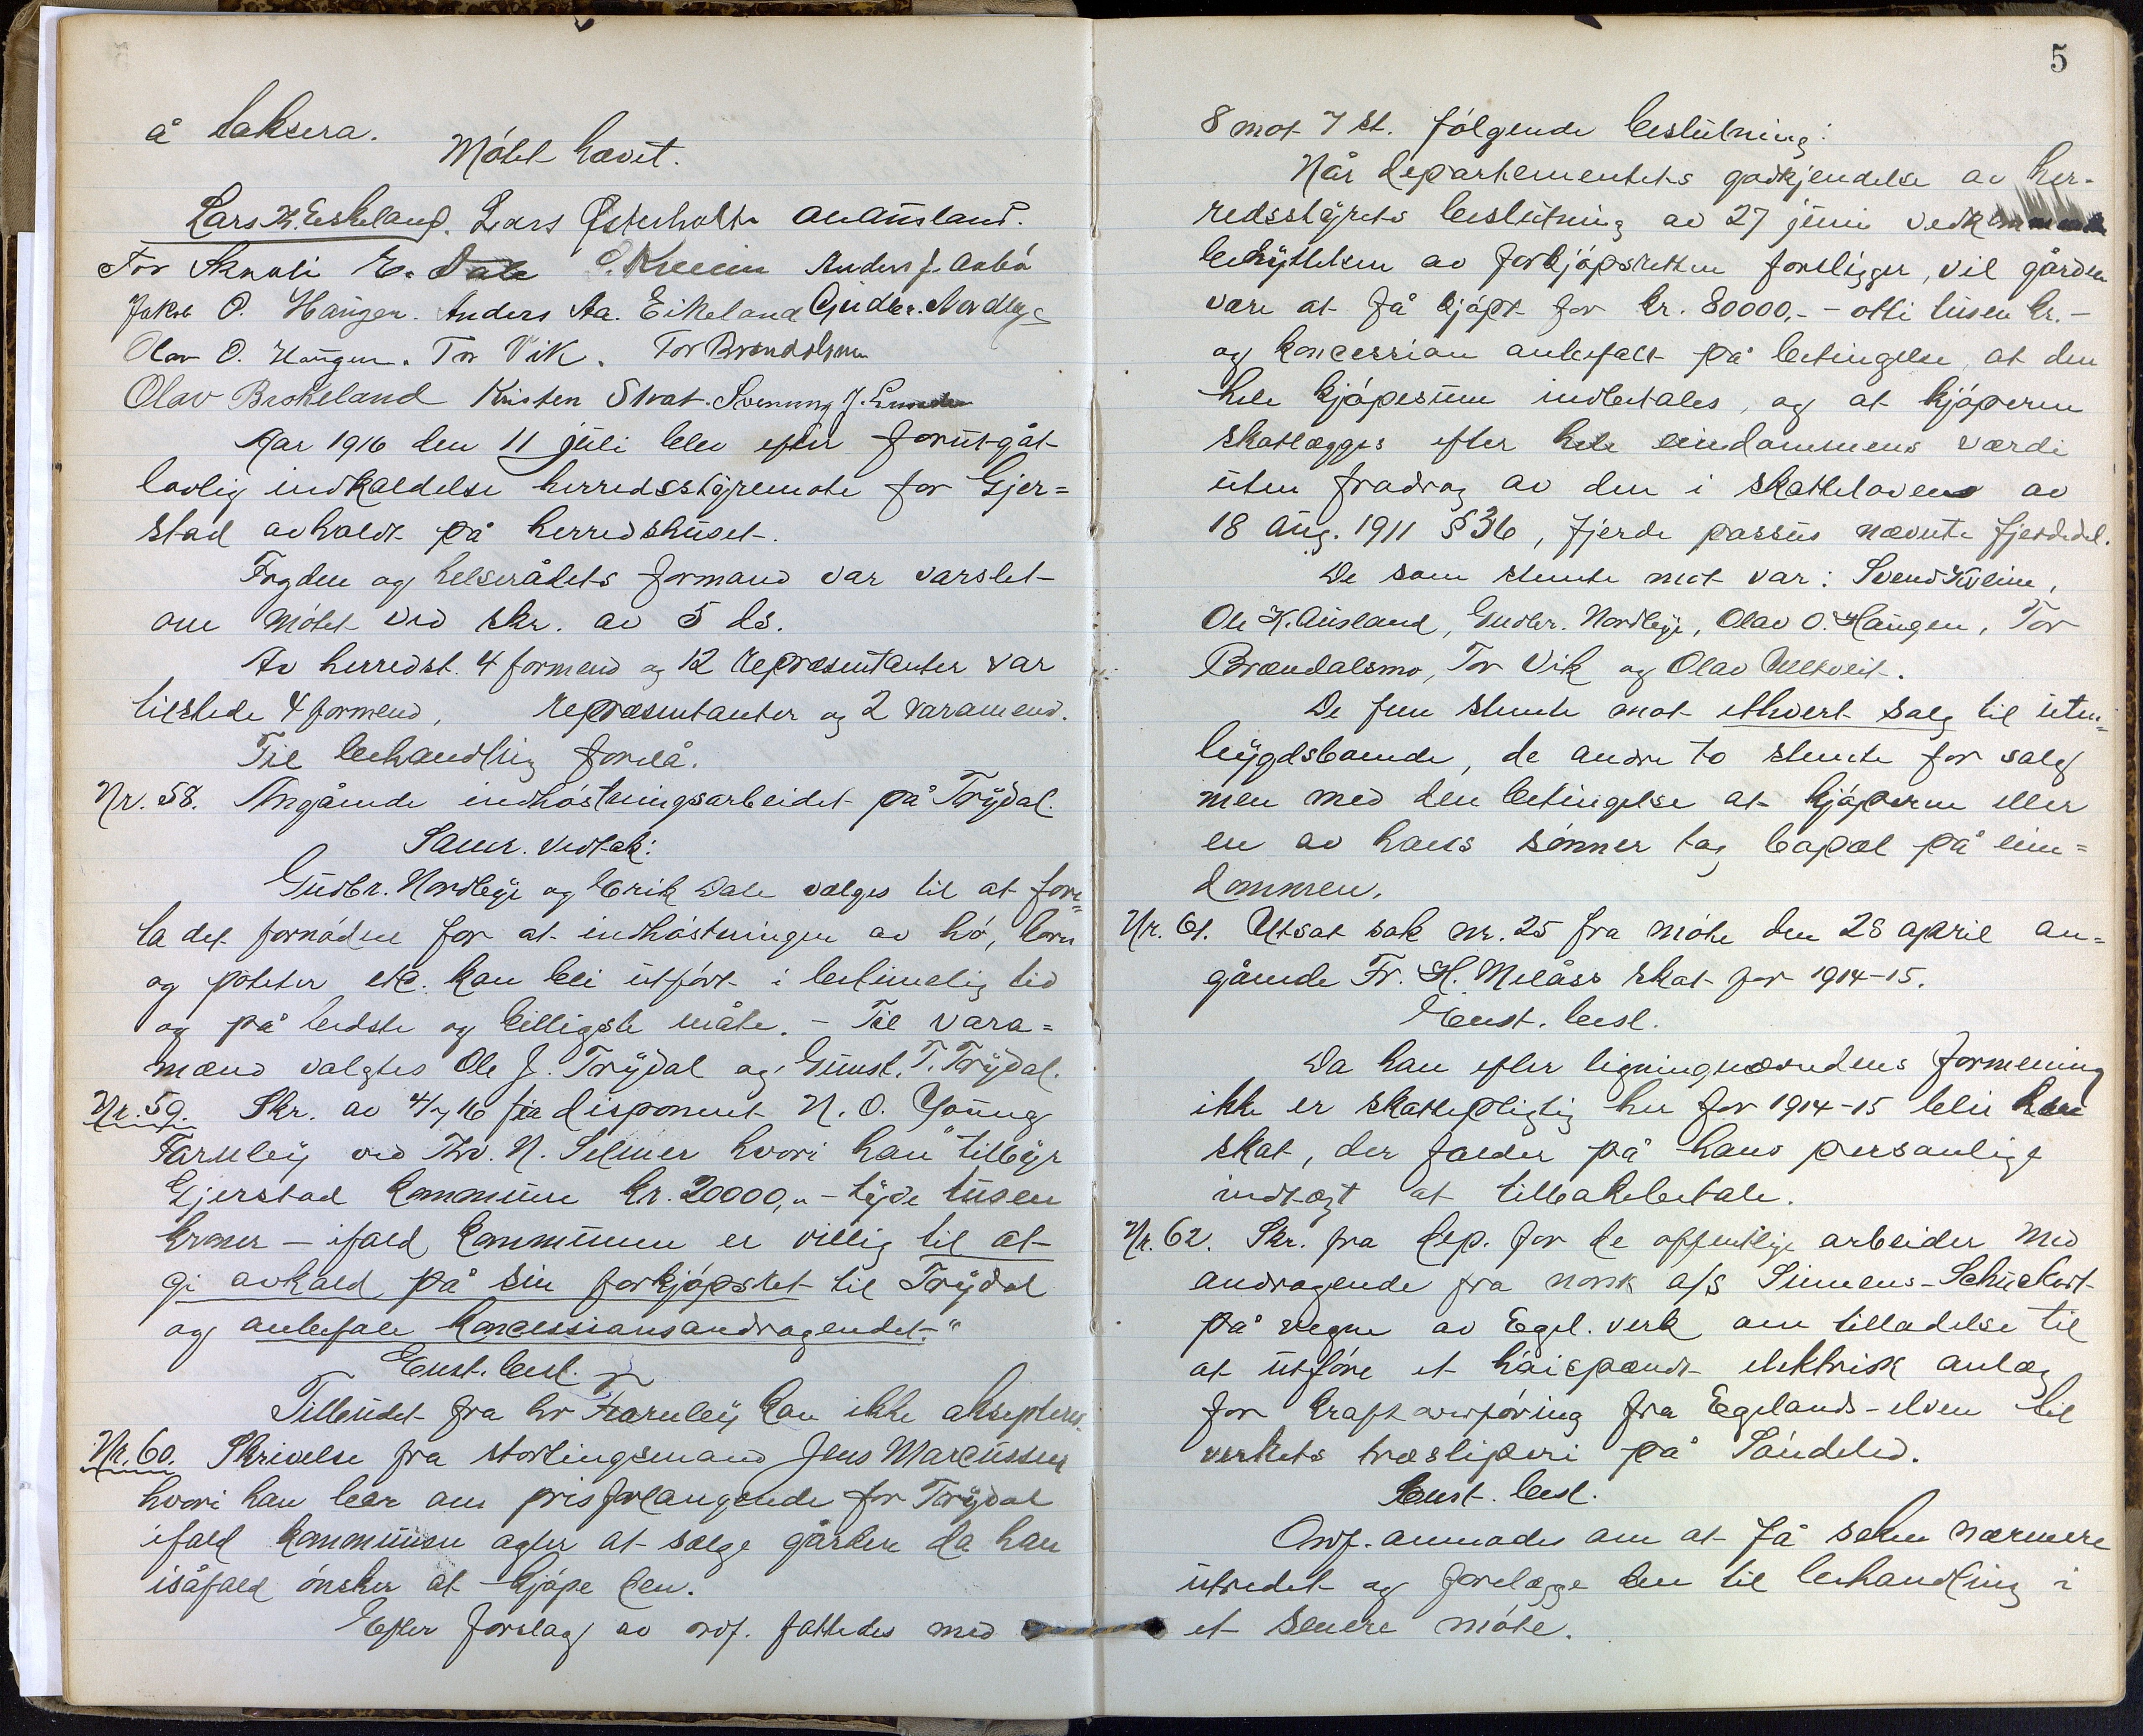 å taksera.
Møtet hævet.
Lars K. Eskeland. Lars Østerholt. OKAusland.
Tor Skarvli E. Dale S. Kveim Anders J. Aabø
Jakob O. Haugen. Anders Aa. Eikeland Gudbr. Nordbye
Olav O. Haugen. Tor Vik. Tor Brændalsmo
Olav Brokeland Kristen Strat. Svenung J. Lunden
Aar 1916 den 11 juli blev efter forutgåt
lovlig indkaldelse herredsstyremøte for Gjer=
stad avholdt på herredshuset.
Fogden og helserådets formand var varslet
om møtet ved skr. av 5 ds.
Av herredst. 4 formend og 12 repræsentanter var
tilstede 4 formend, repræsentanter og 2 varamend.
Til behandling forelå.
Nr. 58. Angående indhøstningsarbeidet på Trydal.
Samr. vedtak:
Gudbr. Nordbye og Erik Dale vælges til at fore=
ta det fornødne for at indhøstningen av hø, korn
og poteter etc. kan bli utført i betimelig tid
og på bedste og billigste måte. – Til vara=
mænd valgtes Ole J. Trydal og Gunst. T. Trydal.
Nr. 59. Skr. av 4/7 16 fra disponent N. O. Young
Farnley ved Thv. N. Selmer hvori han "tilbyr
Gjerstad kommune kr. 20000,- – tyve tusen
kroner – ifald kommunen er villig til at
gi avkald på sin forkjøpsret til Trydal
og anbefale koncessionsandragendet."
Enst. besl.
Tilbudet fra hr Farnley kan ikke aksepteres.
Nr. 60. Skrivelse fra stortingsmand Jens Marcussen
hvori han bær om prisforlangende for Trydal
ifald kommunen agter at sælge gården da han
isåfald ønsker at kjøpe den.
Efter forslag av ordf. fattedes med
5
8 mot 7 st. følgende beslutning:
Når departementets godkjendelse av her-
redsstyrets beslutning av 27 juni vedkommende
benyttelsen av forkjøpsretten foreligger, vil gården
være at få kjøpt for kr. 80000,- – otti tusen kr. –
og koncession anbefalt på betingelse at den
hele kjøpesum indbetales, og at kjøperen
skatlægges efter hele eiendommens værdi
uten fradrag av den i skatteloven av
18 aug. 1911 § 36, fjerde passus nævnte fjerdedel.
De som stemte mot var: Svend Kveim,
Ole K. Ausland, Gudbr. Nordbye, Olav O. Haugen, Tor
Brændalsmo, Tor Vik og Olav Ulltveit.
De fem stemte mot ethvert salg til uten=
bygdsboende, de andre to stemte for salg
men med den betingelse at kjøperen eller
en av hans sønner tag bopæl på eien=
dommen.
Nr. 61. Utsat sak nr. 25 fra møte den 28 april an=
gående Fr. H. Melåss skat for 1914-15.
Enst. besl.
Da han efter ligningnævndens formening
ikke er skattepligtig her for 1914-15 blir
skat, der falder på hans personlige
indtægt at tilbakebetale.
Nr. 62. Skr. fra dep. for de offentlige arbeider med
andragende fra norsk a/s Siemens-Schuckert
på vegne av Egel. verk om tilladelse til
at utføre et høispændt elektrisk anlæg
for kraftoverføring fra Egelands-elven til
verkets træsliperi på Søndeled.
Enst. besl.
Ordf. anmodes om at få saken nærmere
utredet og forelægge den til behandling i
et senere møte.